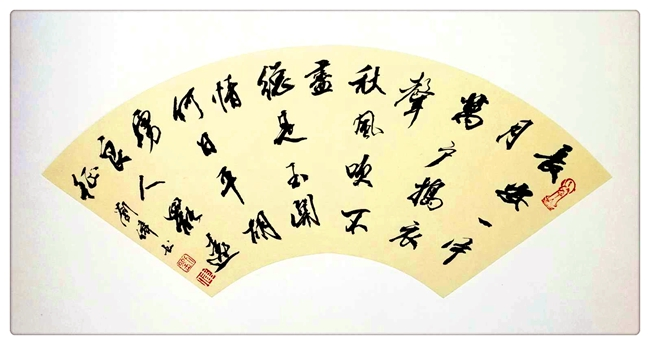 長安一片
月
萬戶搗衣
聲
秋風吹不
盡
總是玉關
情
何日平胡
虜
良人罷遠
征
书